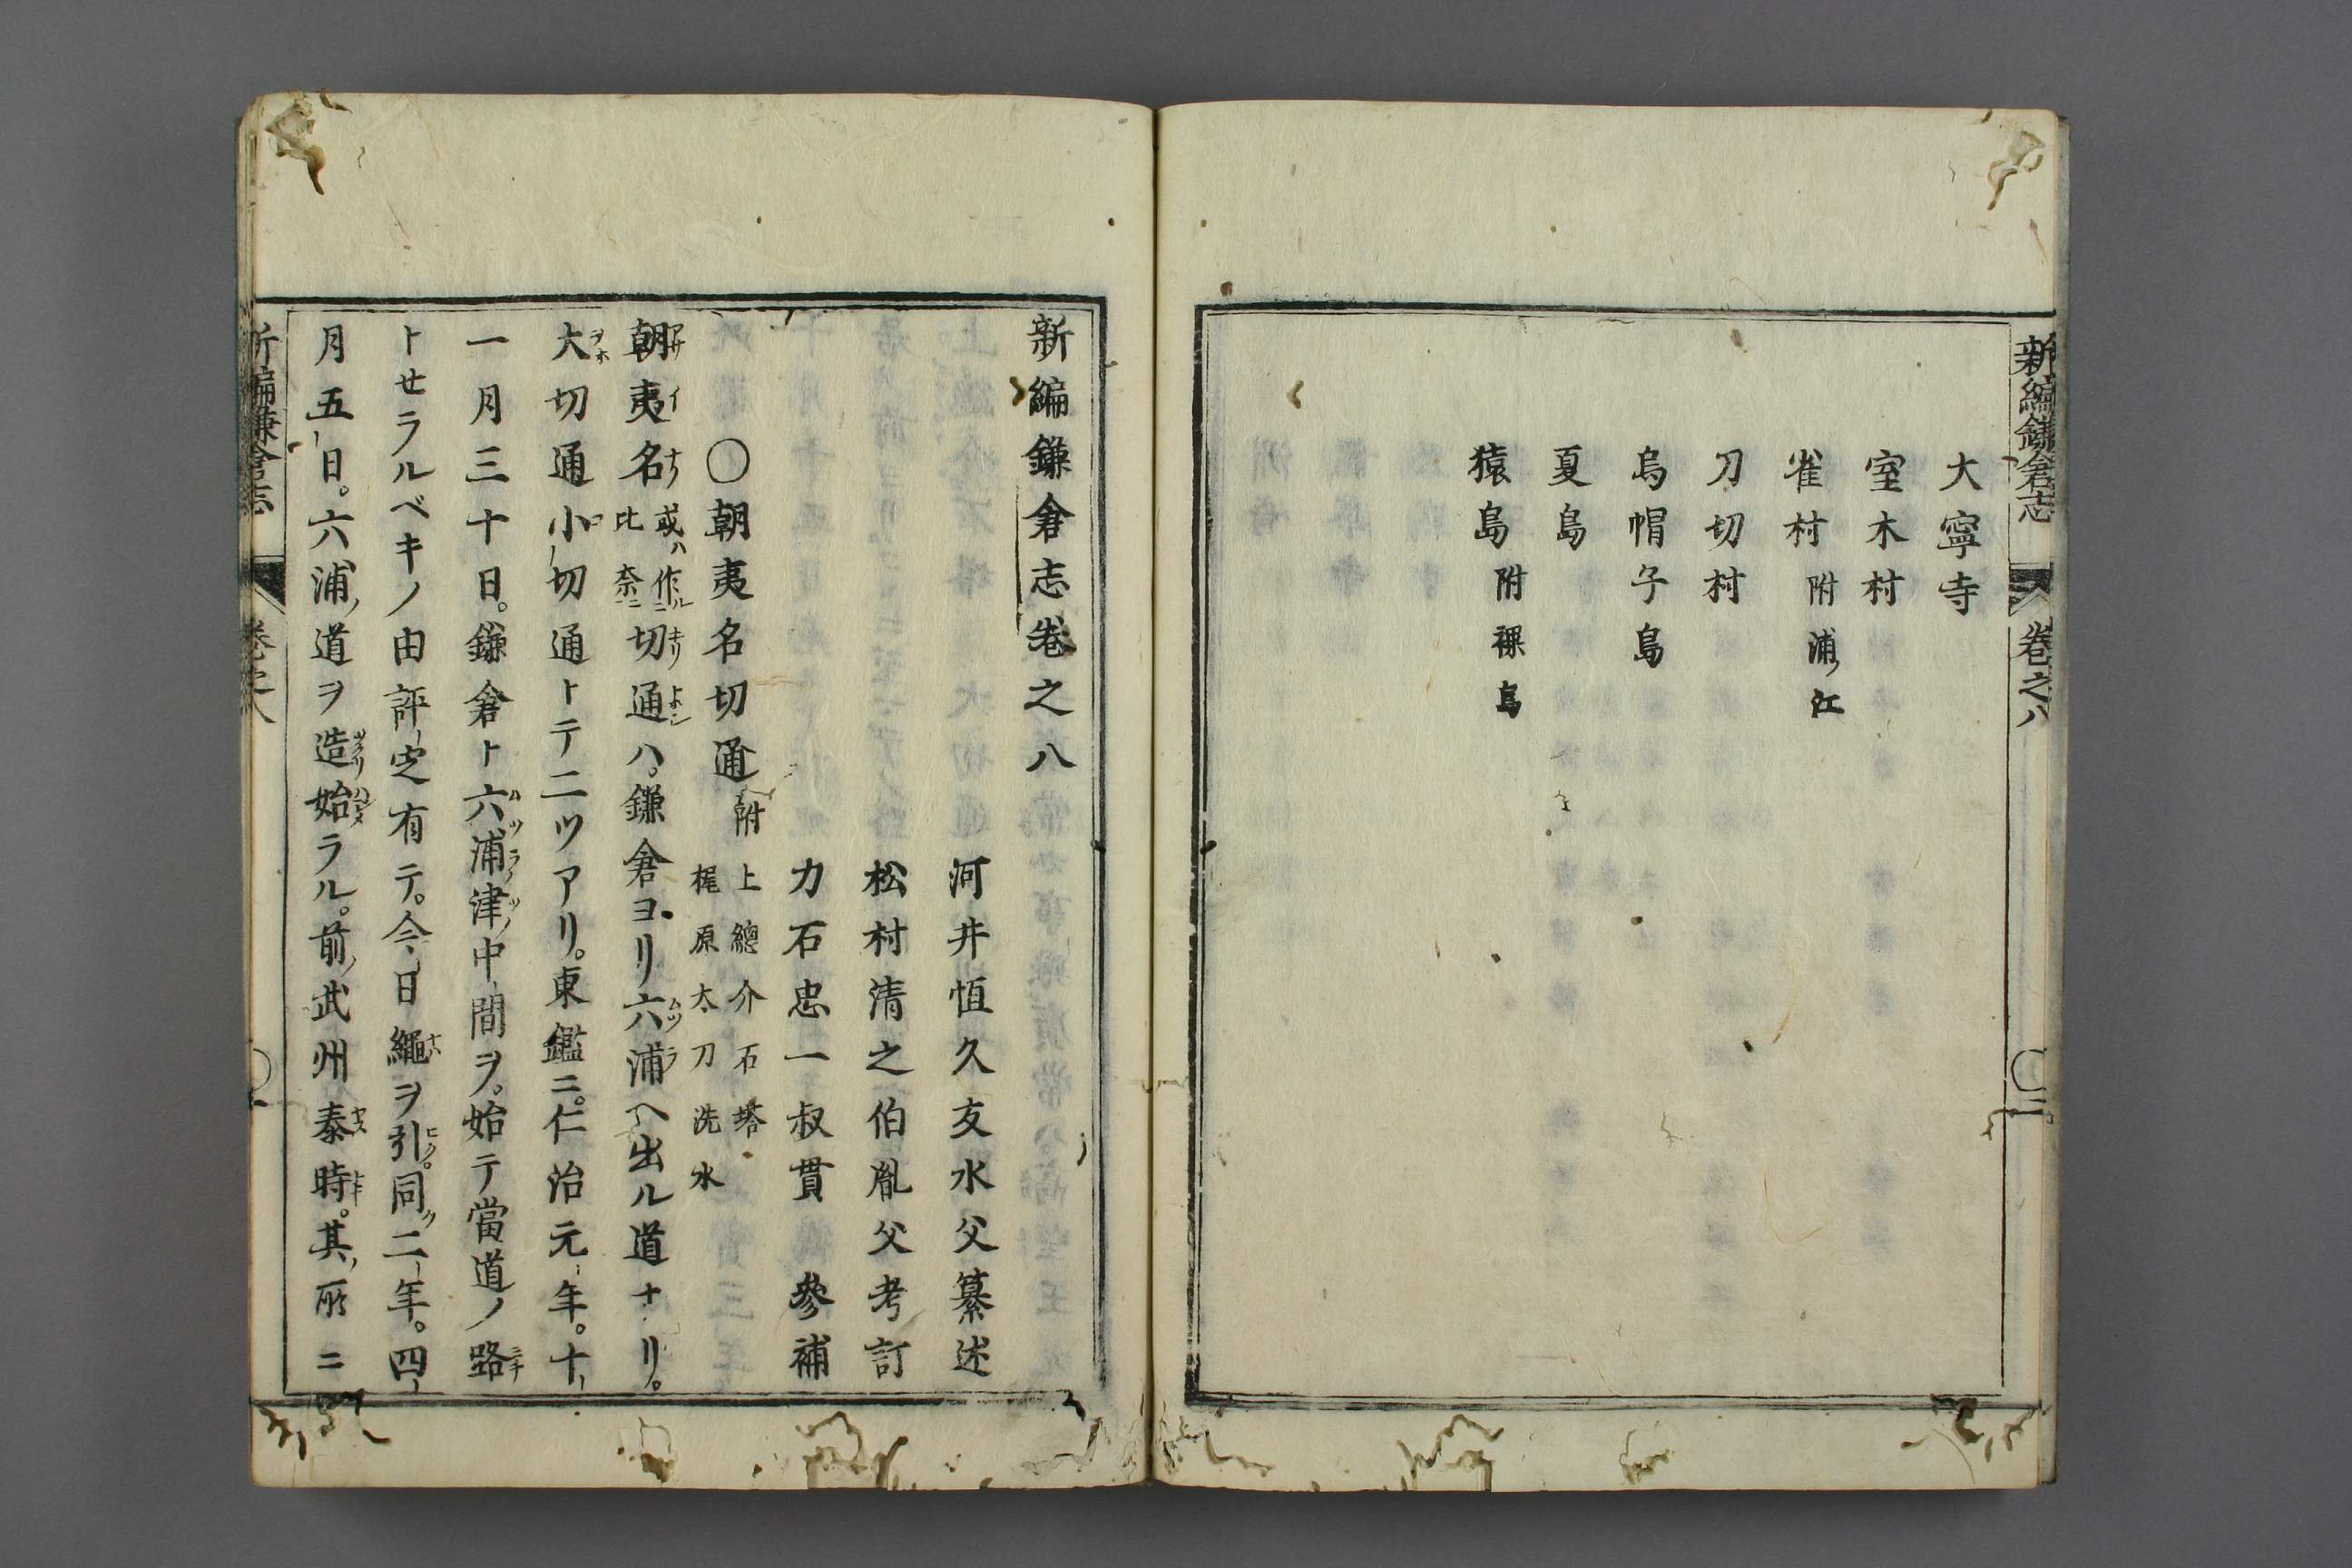 新編鎌倉志
卷之八
〇二
大寧寺
室木村
雀村 附浦ノ江
刀切村
烏帽子島
夏島
猿島 附裸島
新編鎌倉志卷之八
河井恒久友水父纂述
松村清之伯胤父考訂
力石忠一叔貫 參補
〇朝夷名切通 附 上總介石塔 梶原太刀洗水
朝夷名 或ハ作ル比奈ニ 切通ハ。鎌倉ヨリ六浦ヘ出ル道ナリ。
大切通小切通トテ二ツアリ。東鑑ニ。仁治元年。十
一月三十日。鎌倉ト六浦津ノ中間ヲ。始テ當道ノ路
トセラルベキノ由評定有テ。今日繩ヲ引。同ク二年。四
月五日。六浦ノ道ヲ造始ラル。前ノ武州泰時。其ノ所ニ
新編鎌倉志
卷之八